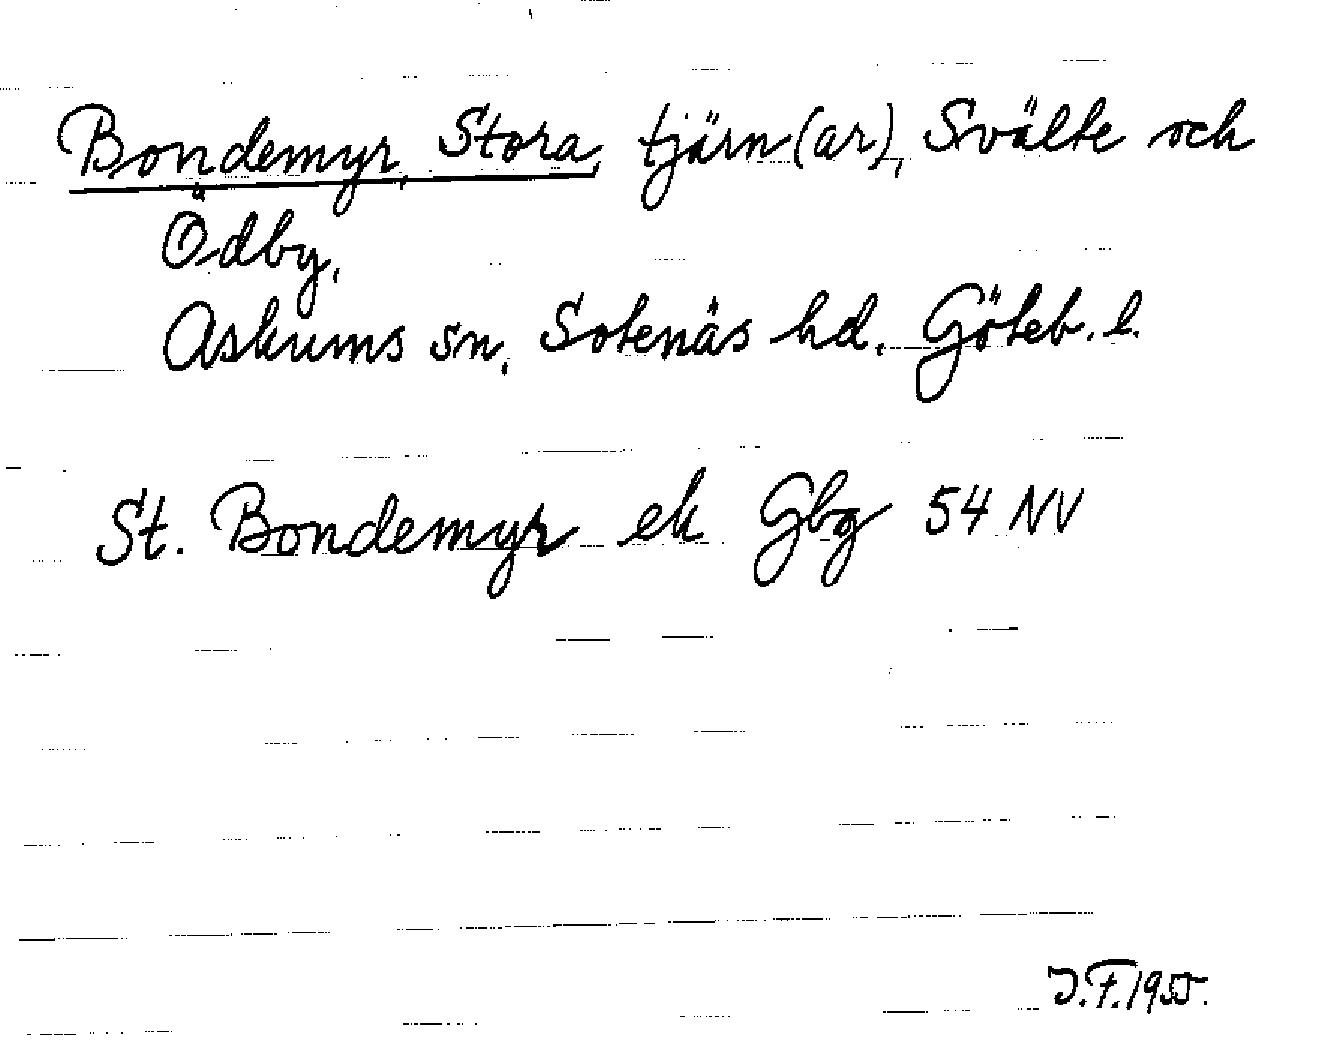 Bondemyr, Stora, tjärn(ar), Svälte och
Ödby,
Askums sn, Sotenäs hd. Göteb. l.
St. Bondemyr ek Gbg 54 NV
J.F. 1955.